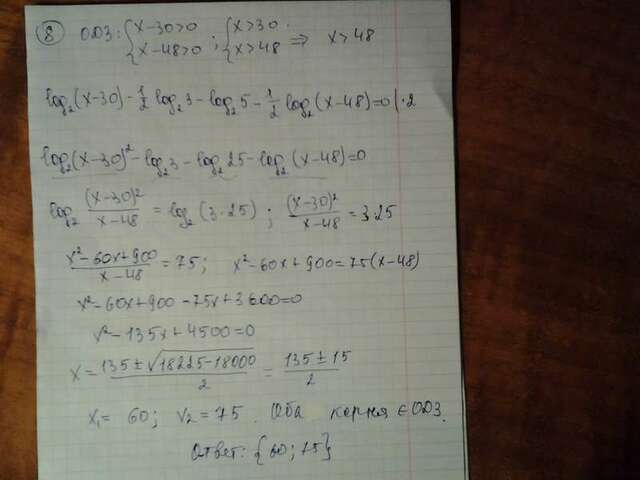 8 ОДЗ: { x-30>0 x-48>0 ; { x>30 x>48 ⇒ x>48
log₂(x-30) - 1/2 log₂3 - log₂5 - 1/2 log₂(x-48)=0 |·2
log₂(x-30)² - log₂3 - log₂25 - log₂(x-48)=0
log₂ (x-30)²/(x-48) = log₂(3·25) ; (x-30)²/(x-48) = 3·25
(x²-60x+900)/(x-48) = 75; x²-60x+900=75(x-48)
x²-60x+900-75x+3600=0
x²-135x+4500=0
x = (135±√(18225-18000))/2 = (135±15)/2
x₁= 60; x₂=75. Оба корня ∈ ОДЗ.
Ответ: {60; 75}